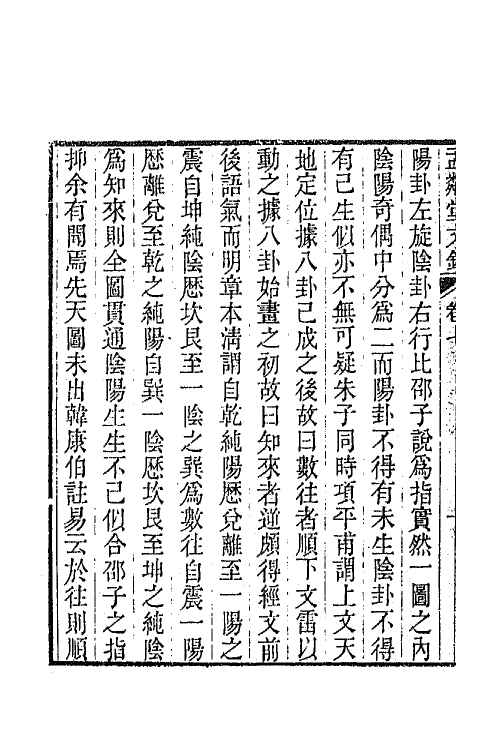 孟鄰堂文鈔 卷
陽卦左旋陰卦右行比邵子說為指實然一圖之內
陰陽奇偶中分為二而陽卦不得有未生陰卦不得
有己生似亦不無可疑朱子同時項平甫謂上文天
地定位據八卦己成之後故曰數往者順下文雷以
動之據八卦始畫之初故曰知來者逆頗得經文前
後語氣而明章本淸謂自乾純陽歷兌離至一陽之
震自坤純陰歷坎艮至一陰之巽為數往自震一陽
歷離兌至乾之純陽自巽一陰歷坎艮至坤之純陰
為知來則全圖貫通陰陽生生不己似合邵子之指
抑余有聞焉先天圖未出韓康伯註易云於往則順